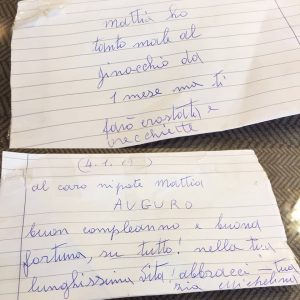 Mattia ho
tanto male al
ginocchio da
1 mese ma ti
farò crostata e
orecchiette
(4.1.
al caro nipote Mattia
AUGURO
buon compleanno e buona
fortuna, su tutto. nella tua
lunghissima vita! abbracci - tua
zia Michelina